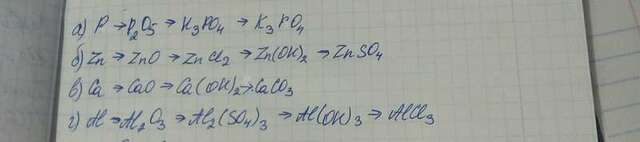 а) P → P₂O₅ → H₃PO₄ → K₃PO₄
б) Zn → ZnO → ZnCl₂ → Zn(OH)₂ → ZnSO₄
в) Ca → CaO → Ca(OH)₂ → CaCO₃
г) Al → Al₂O₃ → Al₂(SO₄)₃ → Al(OH)₃ → AlCl₃